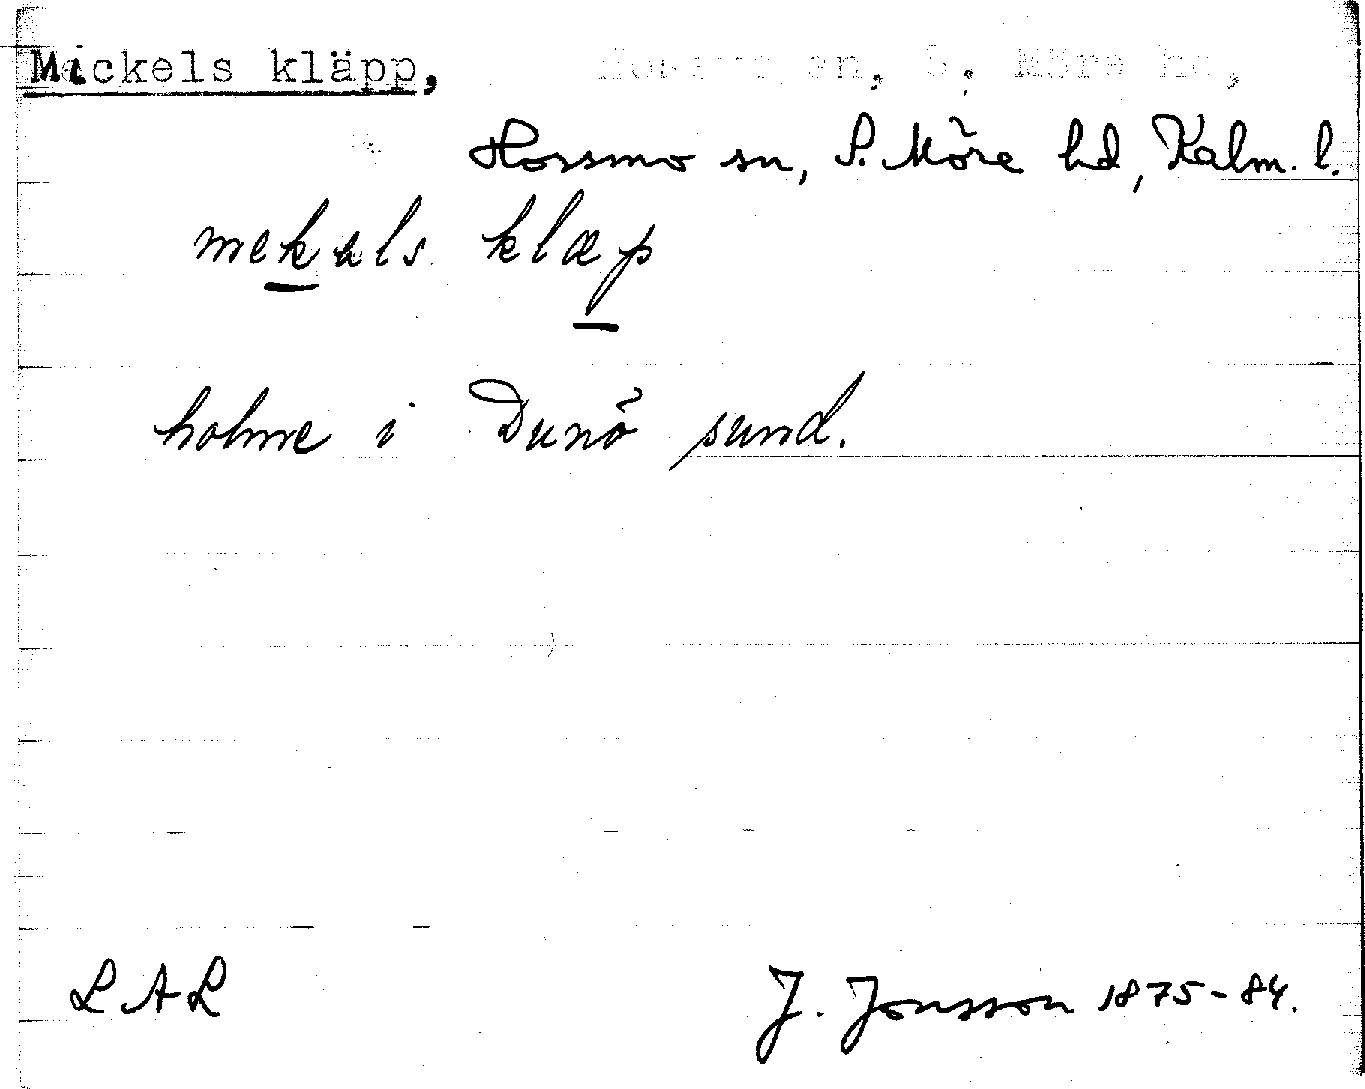 Mickels kläpp,
Hossmo sn, S. Möre hd, Kalm. l.
mekals klæp
holme i Dunö sund.
LAL
J. Jonsson 1875-84.